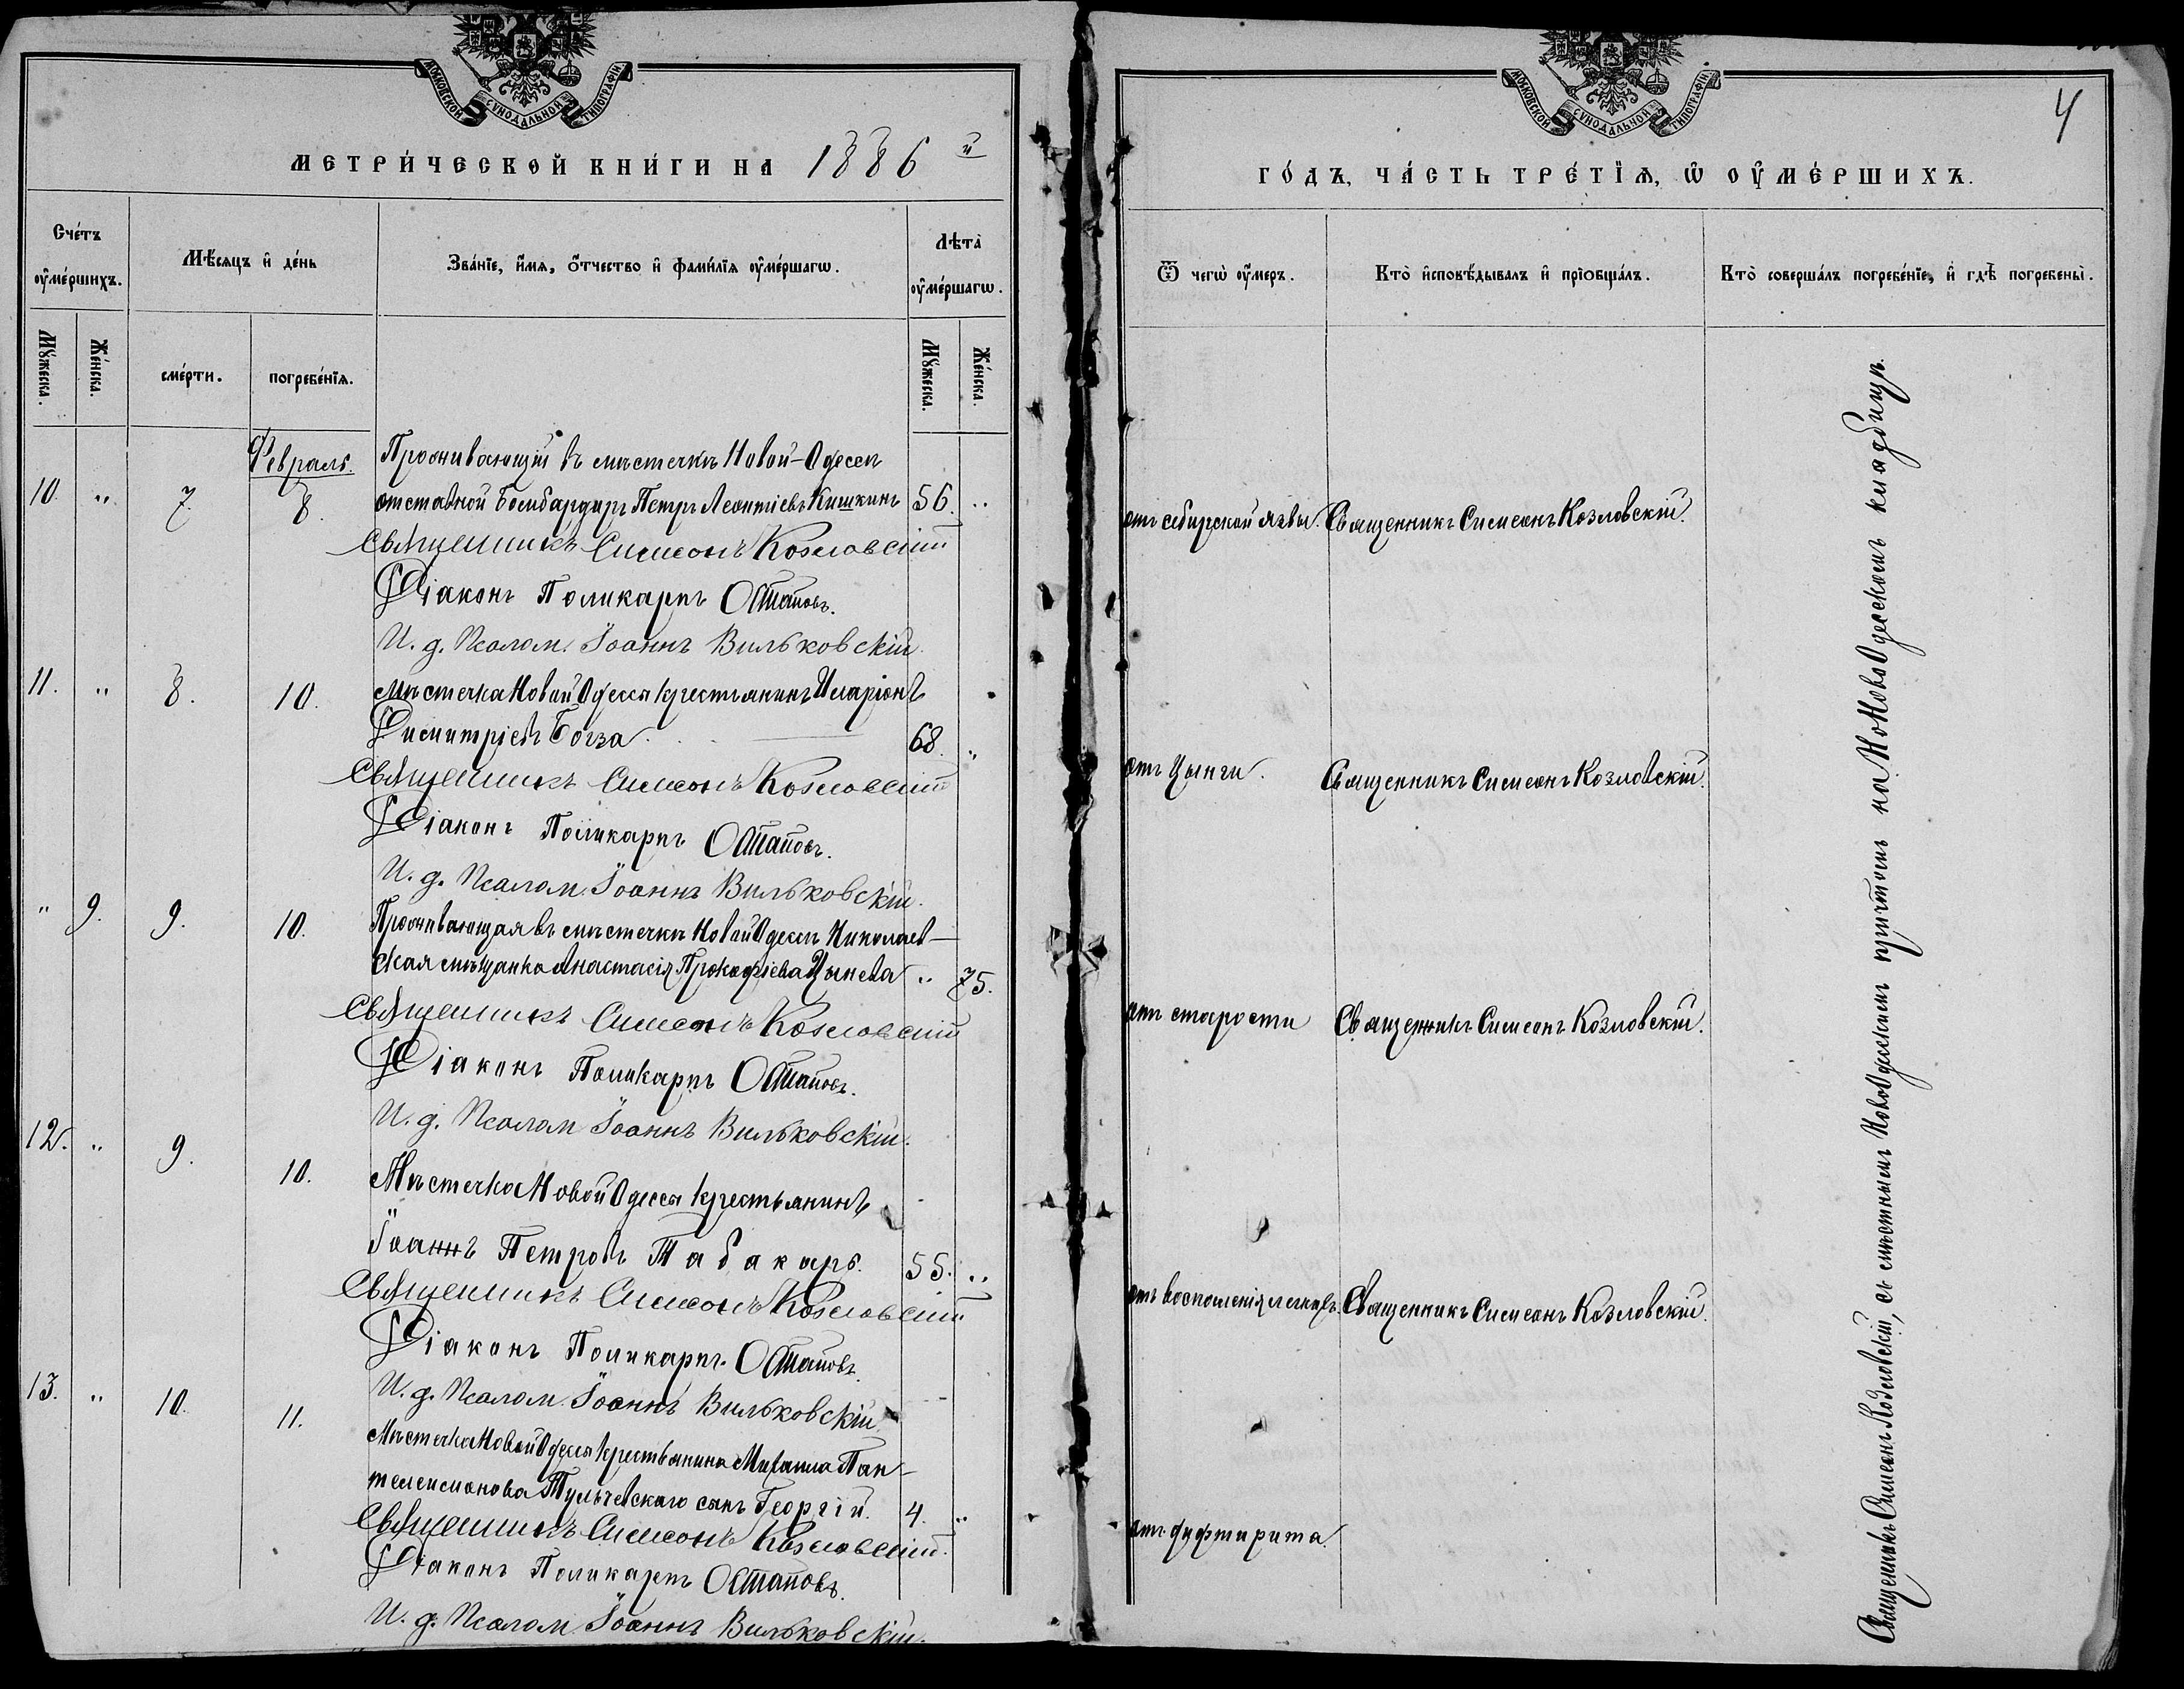 МОСКОВСКОЙ СУНОДАЛЬНОЙ ТИПОГРАФІИ.
МЕТРИ́ЧЕСКОЙ КНИ́ГИ НА 1886 й
Сче́тъ оу҆ме́ршихъ.
Мѣ́сяцъ и҆ де́нь
Зва́нїе, и҆́мя, ѻ҆́тчество и҆ фами́лїя оу҆ме́ршагѡ.
Лѣта̀ оу҆ме́ршагѡ.
Мꙋ́жеска.
Же́нска.
сме́рти.
погребе́нїя.
Мꙋ́жеска.
Же́нска.
Февраль.
Проживающій въ мѣстечкѣ Новой-Одессѣ
10. „ 7. 8. отставной бомбардиръ Петръ Леонтіевъ Кишкинъ 56. „
Священникъ Симеонъ Козловскій
Діаконъ Поликарпъ Остаповъ.
И. д. Псалом. Іоаннъ Вильковскій
11. „ 8. 10. Мѣстечка Новой Одессы крестьянинъ Иларіонъ
Димитріевъ Богза 68. „
Священникъ Симеонъ Козловскій
Діаконъ Поликарпъ Остаповъ.
И. д. Псалом. Іоаннъ Вильковскій.
„ 9. 9. 10. Проживающая въ мѣстечкѣ Новой Одессѣ Николаев-
ская мѣщанка Анастасія Прокофіева Цынева „ 75.
Священникъ Симеонъ Козловскій
Діаконъ Поликарпъ Остаповъ.
И. д. Псалом Іоаннъ Вильковскій.
12. „ 9. 10. Мѣстечка Новой Одессы крестьянинъ
Іоаннъ Петровъ Табакарь. 55. „
Священникъ Симеонъ Козловскій
Діаконъ Поликарпъ Остаповъ.
И. д. Псалом. Іоаннъ Вильковскій
13. „ 10. 11. Мѣстечка Новой Одессы крестьянина Михаила Пан-
телеимонова Тульчевскаго сынъ Георгій. 4. „
Священникъ Симеонъ Козловскій.
Діаконъ Поликарпъ Остаповъ.
И. д. Псалом Іоаннъ Вильковскій.
МОСКОВСКОЙ СУНОДАЛЬНОЙ ТИПОГРАФІИ.
4
ГО́ДЪ, ЧА́СТЬ ТРЕ́ТЇЯ, Ѡ҆ ОУ҆МЕ́РШИХЪ.
Ѿ чегѡ̀ оу҆́меръ.
Кто̀ и҆сповѣ́дывалъ и҆ прїобща́лъ.
Кто̀ соверша́лъ погребе́нїе, и҆ гдѣ̀ погребены̀.
отъ сибирской язвы. Священникъ Симеонъ Козловскій.
отъ цынги. Священникъ Симеонъ Козловскій.
отъ старости Священникъ Симеонъ Козловскій.
отъ воспаленія легкихъ. Священникъ Симеонъ Козловскій.
отъ дифтирита.
Священникъ Симеонъ Козловскій, съ мѣстнымъ Новоодесскимъ причтомъ на Новоодесскомъ кладбищѣ.